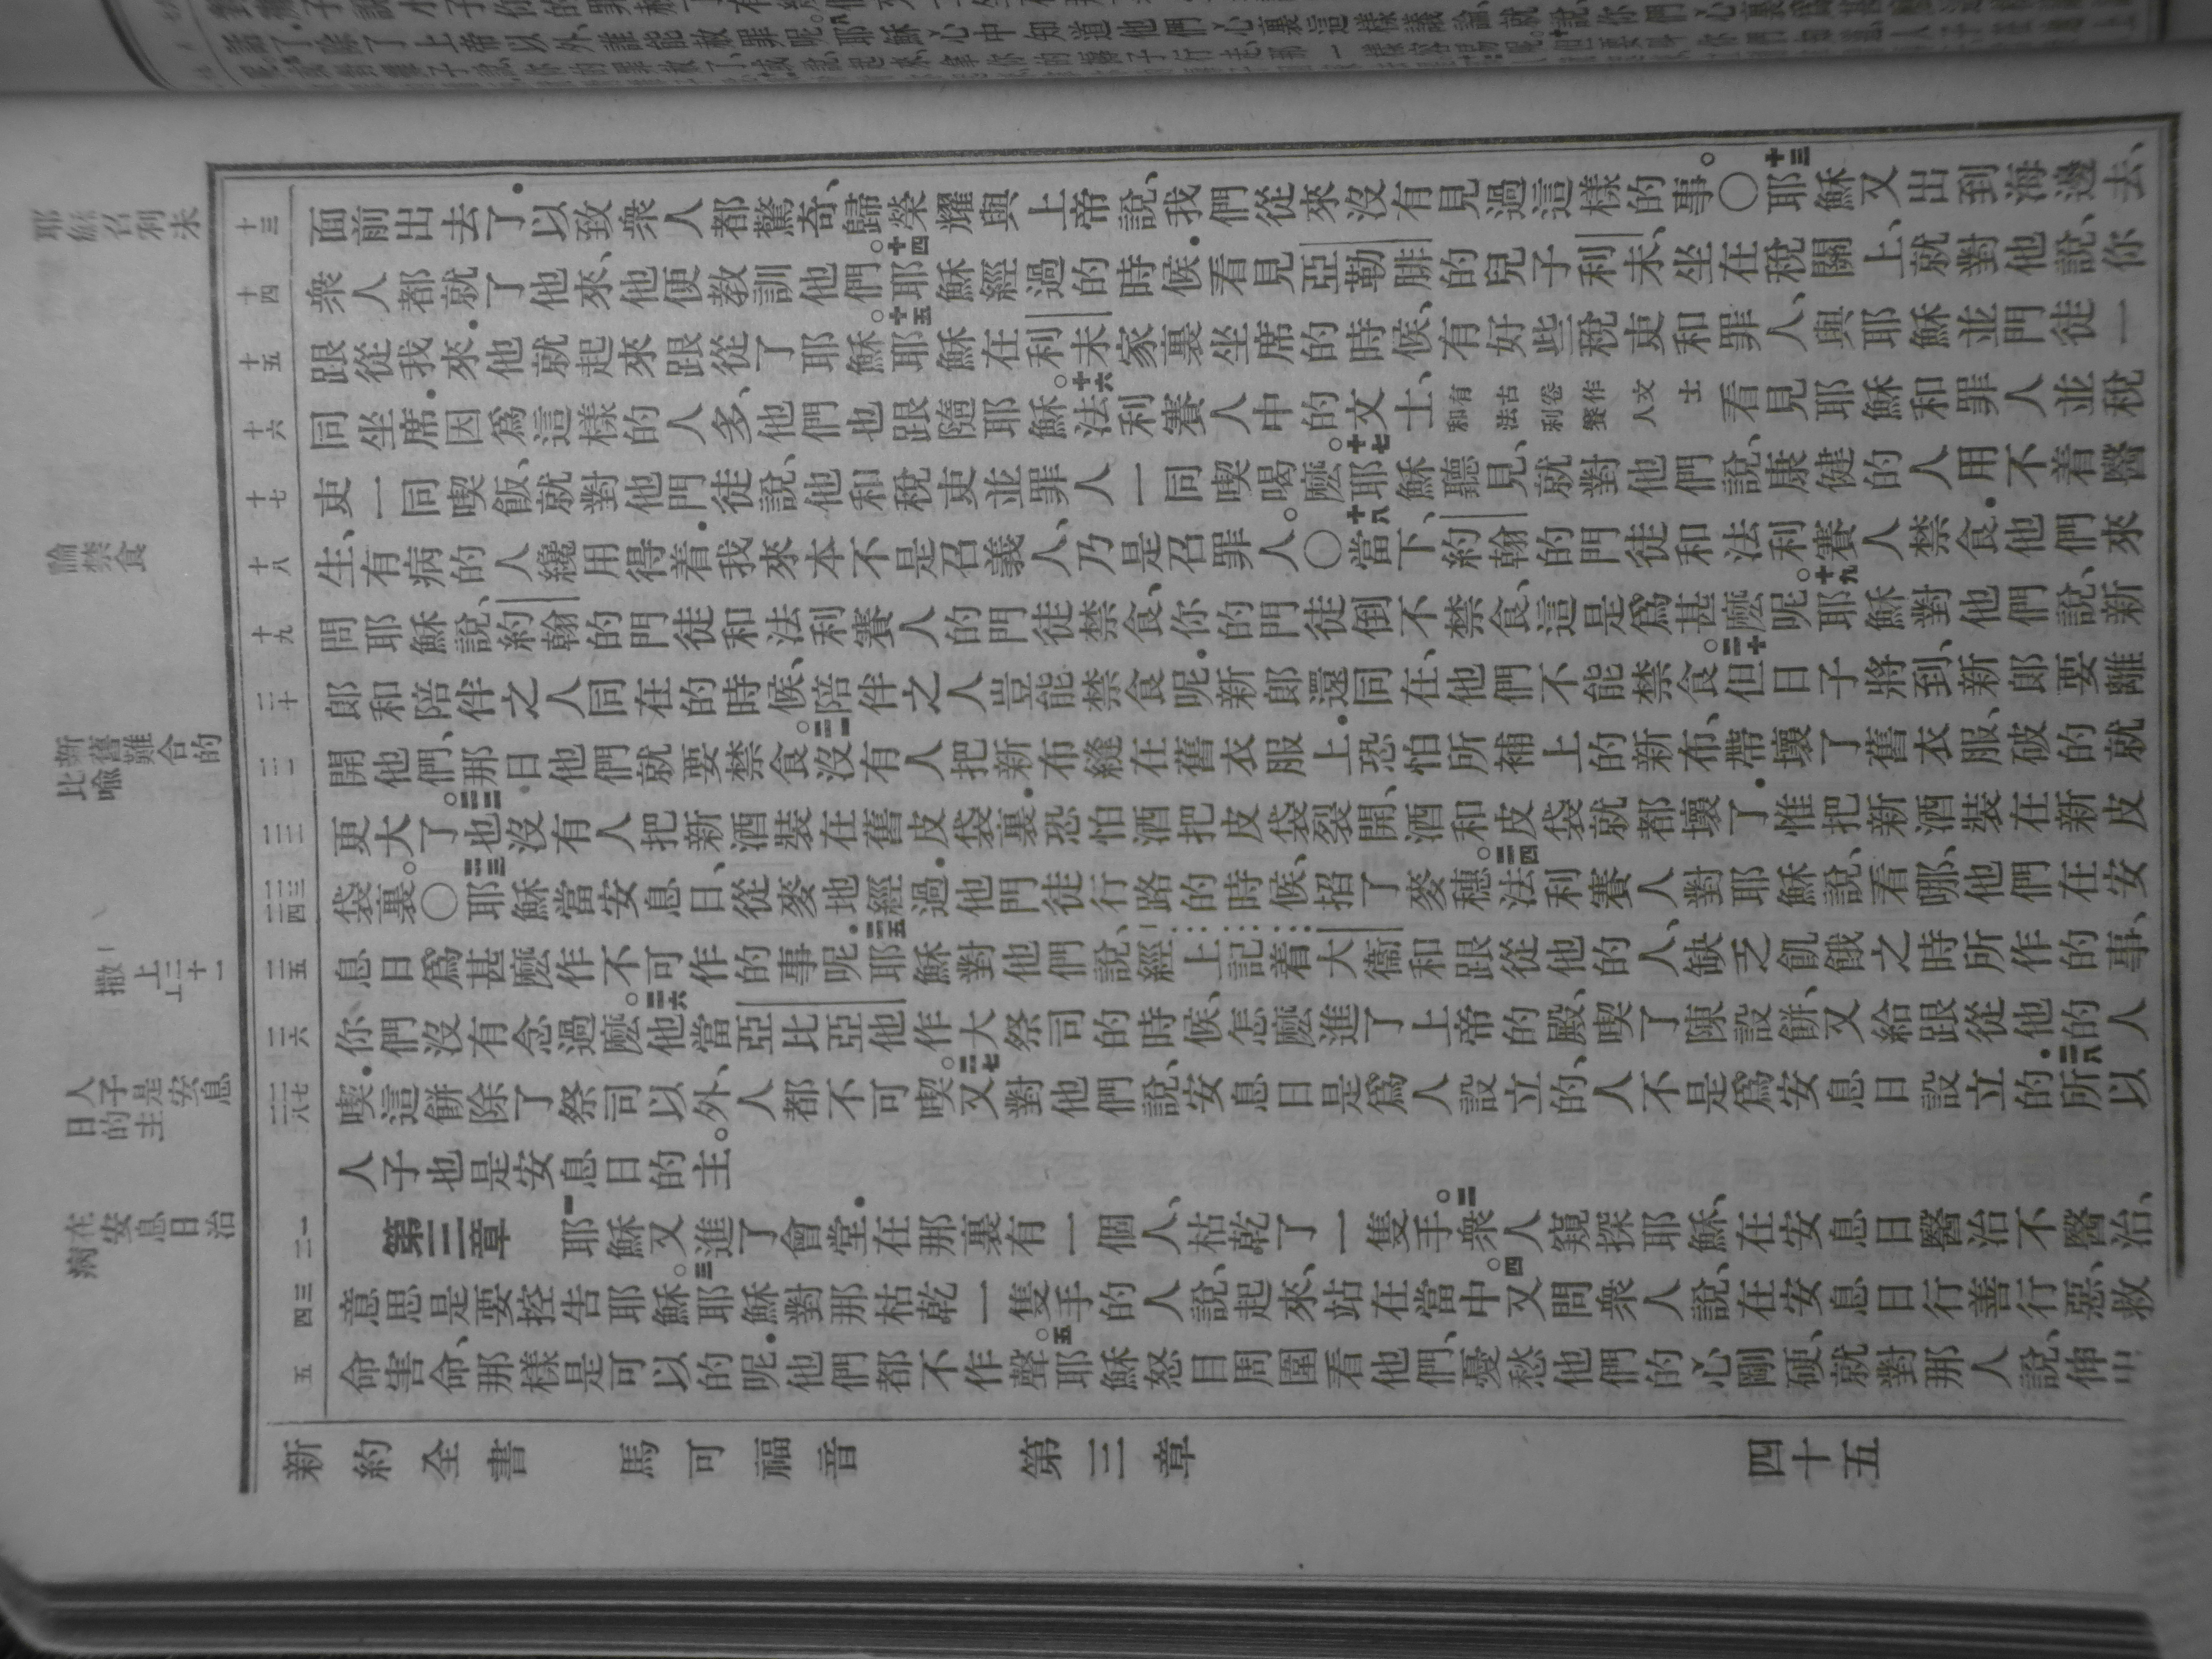 了、除了上帝以外、誰能赦罪呢。耶穌心中知道他們心裏這樣議論、就說、你們心裏
面前出去了．以致衆人都驚奇、歸榮耀與上帝說、我們從來沒有見過這樣的事。〇十三耶穌又出到海邊去、
衆人都就了他來、他便教訓他們。十四耶穌經過的時候、看見亞勒腓的兒子利未、坐在稅關上、就對他說、你
跟從我來．他就起來跟從了耶穌。十五耶穌在利未家裏坐席的時候、有好些稅吏和罪人、與耶穌並門徒一
同坐席．因爲這樣的人多、他們也跟隨耶穌。十六法利賽人中的文士、有古卷作文士和法利賽人看見耶穌和罪人並稅
吏一同喫飯、就對他門徒說、他和稅吏並罪人一同喫喝麼。十七耶穌聽見、就對他們說、康健的人用不着醫
生、有病的人纔用得着．我來本不是召義人、乃是召罪人。〇十八當下、約翰的門徒和法利賽人禁食．他們來
問耶穌說、約翰的門徒和法利賽人的門徒禁食、你的門徒倒不禁食、這是爲甚麼呢。十九耶穌對他們說、新
郎和陪伴之人同在的時候、陪伴之人豈能禁食呢．新郎還同在、他們不能禁食。二十但日子將到、新郎要離
開他們、那日他們就要禁食。二一沒有人把新布縫在舊衣服上．恐怕所補上的新布、帶壞了舊衣服、破的就
更大了。二二也沒有人把新酒裝在舊皮袋裏．恐怕酒把皮袋裂開、酒和皮袋就都壞了．惟把新酒裝在新皮
袋裏。〇二三耶穌當安息日、從麥地經過．他門徒行路的時候、掐了麥穗。二四法利賽人對耶穌說、看哪、他們在安
息日爲甚麼作不可作的事呢．二五耶穌對他們說、經上記着大衞和跟從他的人、缺乏飢餓之時所作的事、
你們沒有念過麼。二六他當亞比亞他作大祭司的時候、怎麼進了上帝的殿、喫了陳設餅、又給跟從他的人
喫．這餅除了祭司以外、人都不可喫。二七又對他們說、安息日是爲人設立的、人不是爲安息日設立的．二八所以
人子也是安息日的主。
第三章　一耶穌又進了會堂．在那裏有一個人、枯乾了一隻手。二衆人窺探耶穌、在安息日醫治不醫治、
意思是要控告耶穌。三耶穌對那枯乾一隻手的人說、起來、站在當中。四又問衆人說、在安息日行善行惡、救
命害命、那樣是可以的呢．他們都不作聲。五耶穌怒目周圍看他們、憂愁他們的心剛硬、就對那人說、伸出
新約全書　馬可福音　第三章　四十五
耶穌召利未
論禁食
比喻新舊難合的
撒上二十一
人子是安息日的主
在安息日治病
十三
十四
十五
十六
十七
十八
十九
二十
二一
二二
二三 二四
二五
二六
二七 二八
一 二
三 四
五